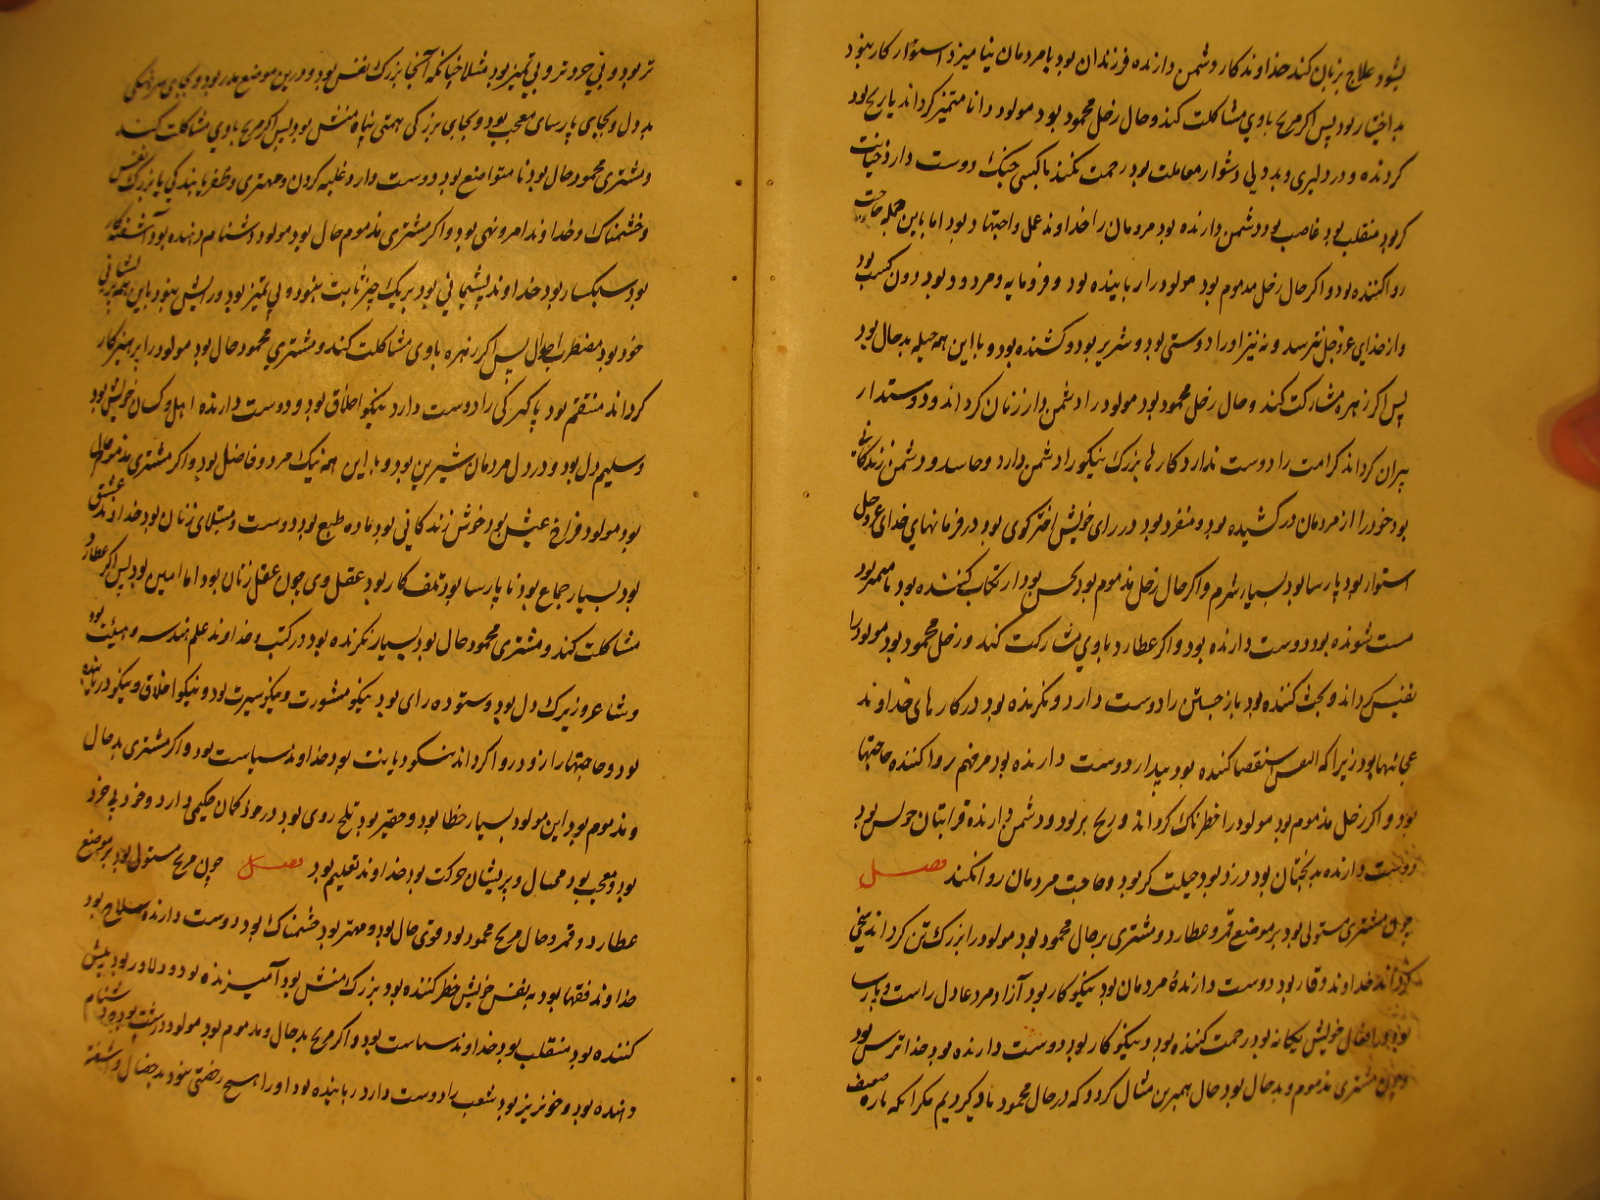 بشود علاج بزبان کند خداوند کار دشمن دارنده فرزندان بود با مردمان نیامیزد استوار کار بنود
بد اختیار بود پس اکر مریخ باوی مشاکلت کند و حال زحل محمود بود مولود را نا متمیز کرداند یا رنج بود
کردنده و در دلیری و بد دلی دشوار معاملت بود رحمت نکند با کسی جنک دوست دارد خیانت
کر بود منقلب بود غاصب بود دشمن دارنده بود مردمان را خداوند عمل واجبتها بود اما باین جمله حاجت
روا کننده بود و اکر حال زحل مذموم بود مولود را رباینده بود و فرومایه و مردود بود دون کسب بود
و از خدای عزوجل نترسد و نه نیز او را دوستی بود و شریر بود و کشنده بود و با این همه حیله بد حال بود
پس اکر زهره مشارکت کند و حال زحل محمود بود مولود را دشمن دار زنان کرداند و دوستدار
پیران کرداند کرامت را دوست ندارد کارهای بزرک نیکو را دشمن دارد و حاسد و دشمن زندکانی
بود خود را از مردمان در کشیده بود و منفرد بود در رای خویش اختر کوی بود در فرمانهای خدای عزوجل
استوار بود پارسا بود بسیار شرم و اکر حال زحل مذموم بود نحس بود ارتکاب کننده بود نا متمیز بود
مست شونده بود دوست دارنده بود و اکر عطارد باوی مشارکت کند و زحل محمود بود مولود را
نفیس کرداند و بحث کننده بود باز جستن را دوست دارد و نکرنده بود در کارهای خداوند
عجائبها بود زیرا که استقصا کننده بود بیدار دوست دارنده بود مرفهم روا کننده حاجتها
بود و اکر زحل مذموم بود مولود را خطرناک کرداند و رنج بر بود و دشمن دارنده قرابتان خویش بود
دوست دارنده بدبختان بود دزد بود حیلت کر بود و حاجت مردمان روا نکند فصل
چون مشتری مستولی بود بر موضع قمر و عطارد و مشتری بر حال محمود بود مولود را بزرک تن کرداند سخی
کرداند خداوند وقار بود دوست دارندهٔ مردمان بود نیکو کار بود آزاد مرد عادل راست و پارسا
بود در افعال خویش یکانه بود رحمت کننده بود و نیکو کار بود دوست دارنده بود خدا ترس بود
و چون مشتری مذموم و بد حال بود حال همبرین مثال کردد که در حال محمود یاد کردیم مکر آنکه پاره ضعیف
تر بود و بی خرد تر و بی تمیز بود مثلا چنانکه آنجا بزرک نفس بود و درین موضع مدبر بود و بجای مردمی
بد دل و بجای پارسای معجب بود و بجای بزرکی همتی پناه منش بود پس اکر مریخ باوی مشاکلت کند
و مشتری محمود حال بود نا متواضع بود دوست دار و غلبه کردن و مهتری و ظفر یابندکی با بزرک نفس
و خشمناک و خداوند امر و نهی بود و اکر مشتری مذموم حال بود مولود دشنام دهنده بود آشفته کار
بود سبکسار بود خداوند پشیمانی بود بر یک چیز ثابت بنود و بی تمیز بود و رایش بنود باین همه پریشانی
خود بود مضطرب احوال پس اکر زهره باوی مشاکلت کند و مشتری محمود حال بود مولود را پرهیزکار
کرداند منتقم بود پاکیزکی را دوست دارد نیکو اخلاق بود و دوست دارنده اهل و کسان خویش بود
و سلیم دل بود و در دل مردمان شیرین بود و با این همه نیک مرد و فاضل بود و اکر مشتری مذموم حال
بود مولود فراخ عیش بود خوش زندکانی بود ماده طبع بود دوست و مبتلای زنان بود خداوند عشق
بود بسیار جماع بود نا پارسا بود تلف کار بود عقل وی چون عقل زنان بود اما امین بود پس اکر عطارد
مشاکلت کند و مشتری محمود حال بود بسیار نکرنده بود در کتب و خداوند علم هندسه و هیئت بود
و شاعر و زیرک دل بود و ستوده رای بود نیکو مشورت و نیکو سیرت بود و نیکو اخلاق و نیکو دریابنده
بود و حاجتها را زود روا کرداند نیکو دیانت بود خداوند سیاست بود و اکر مشتری بد حال
و مذموم بود این مولود بسیار خطا بود و حقیر بود تلخ روی بود در خود کمان حکیمی دارد و خود بی خرد
بود و معجب بود و پریشان حرکت بود خداوند تعلیم بود فصل چون مریخ مستولی بود بر موضع
عطارد و قمر و حال مریخ محمود بود قوی حال بود و مهتر بود خشمناک بود دوست دارنده سلاح بود
خداوند فقها بود به نفس خویش خطر کننده بود بزرک منش بود آمیزنده بود و دلاور بود بیش
کننده بود منقلب بود خداوند سیاست بود و اکر مریخ بد حال و مذموم بود مولود درشت بود دشنام
دهنده بود و خونریز بود شعب را دوست دارد رباینده بود او را هیچ رحمتی بنود بد خصال و آشفته